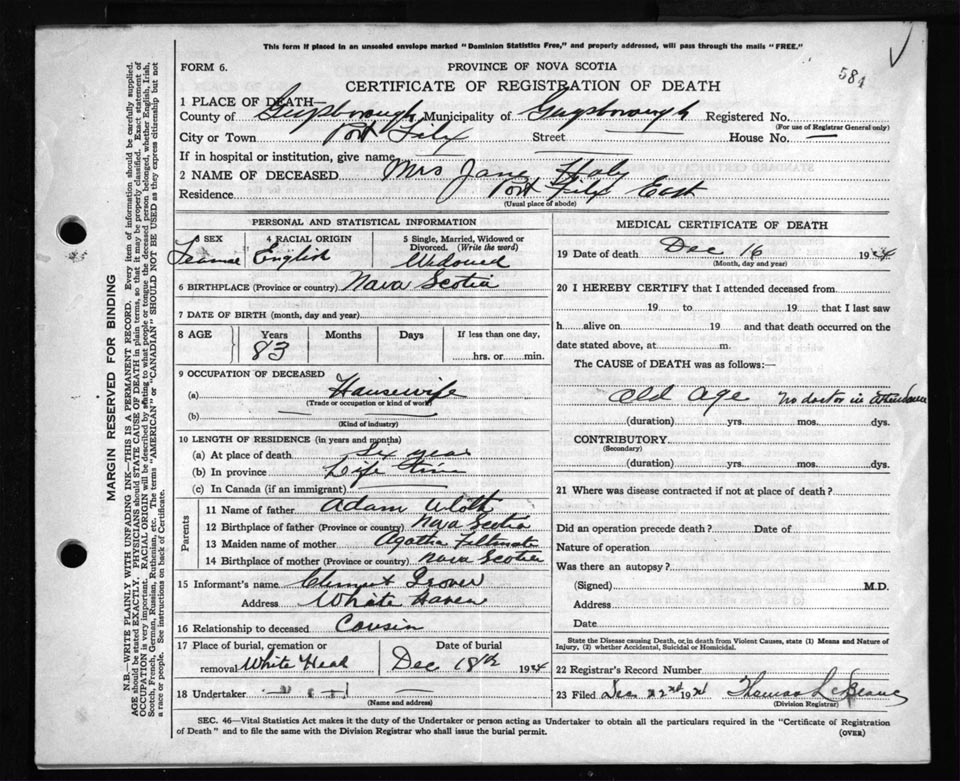 This form if placed in an unsealed envelope marked "Dominion Statistics Free," and properly addressed, will pass through the mails "FREE."
FORM 6.
PROVINCE OF NOVA SCOTIA
584
CERTIFICATE OF REGISTRATION OF DEATH
1 PLACE OF DEATH—
County of Guysborough Municipality of Guysborough Registered No.
(For use of Registrar General only)
City or Town Port Felix Street House No. —
If in hospital or institution, give name
2 NAME OF DECEASED Mrs Jane
Residence Port Felix East
(Usual place of abode)
PERSONAL AND STATISTICAL INFORMATION
3 SEX 4 RACIAL ORIGIN 5 Single, Married, Widowed or Divorced. (Write the word)
English Widowed
6 BIRTHPLACE (Province or country) Nova Scotia
7 DATE OF BIRTH (month, day and year)
8 AGE Years Months Days If less than one day,
83 hrs. or min.
9 OCCUPATION OF DECEASED
(a) Housewife
(Trade or occupation or kind of work)
(b) — —
(Kind of industry)
10 LENGTH OF RESIDENCE (in years and months)
(a) At place of death Six year
(b) In province Life time
(c) In Canada (if an immigrant)
Parents
11 Name of father Adam
12 Birthplace of father (Province or country) Nova Scotia
13 Maiden name of mother Agatha
14 Birthplace of mother (Province or country) Nova Scotia
15 Informant's name
Address White Haven
16 Relationship to deceased Cousin
17 Place of burial, cremation or Date of burial
removal White Head Dec 18th 1934
18 Undertaker
(Name and address)
MEDICAL CERTIFICATE OF DEATH
19 Date of death Dec 16 1934
(Month, day and year)
20 I HEREBY CERTIFY that I attended deceased from
19 to 19 that I last saw
h alive on 19 and that death occurred on
date stated above, at m.
The CAUSE of DEATH was as follows:—
Old age No doctor in attendance
(duration) yrs. mos. dys.
CONTRIBUTORY
(Secondary)
(duration) yrs. mos. dys.
21 Where was disease contracted if not at place of death?
Did an operation precede death? Date of
Nature of operation
Was there an autopsy?
(Signed) M.D.
Address
Date
State the Disease causing Death, or, in death from Violent Causes, state (1) Means and Nature of
Injury, (2) whether Accidental, Suicidal or Homicidal.
22 Registrar's Record Number
23 Filed Dec 22nd 1934 Thomas
(Division Registrar)
SEC. 46—Vital Statistics Act makes it the duty of the Undertaker or person acting as Undertaker to obtain all the particulars required in the "Certificate of Registration
of Death" and to file the same with the Division Registrar who shall issue the burial permit.
(OVER)
MARGIN RESERVED FOR BINDING
N.B.—WRITE PLAINLY WITH UNFADING INK—THIS IS A PERMANENT RECORD. Every item of information should be carefully supplied.
AGE should be stated EXACTLY. PHYSICIANS should STATE CAUSE OF DEATH in plain terms, so that it may be properly classified. Exact statement of
OCCUPATION is very important. RACIAL ORIGIN will be described by stating to what people or tongue the deceased person belonged, whether English, Irish,
Scotch, French, German, Russian, Ruthenian, etc. The terms "AMERICAN" or "CANADIAN" SHOULD NOT BE USED as they express citizenship but not
a race or people. See instructions on back of Certificate.